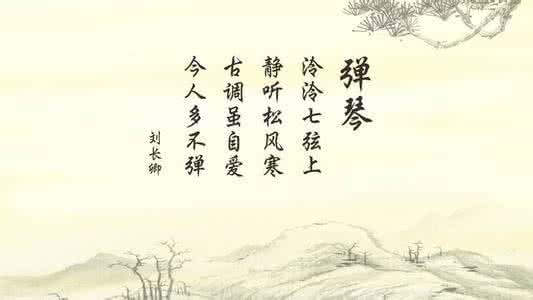 弹琴
泠泠七弦上
静听松风寒
古调虽自爱
今人多不弹
刘长卿